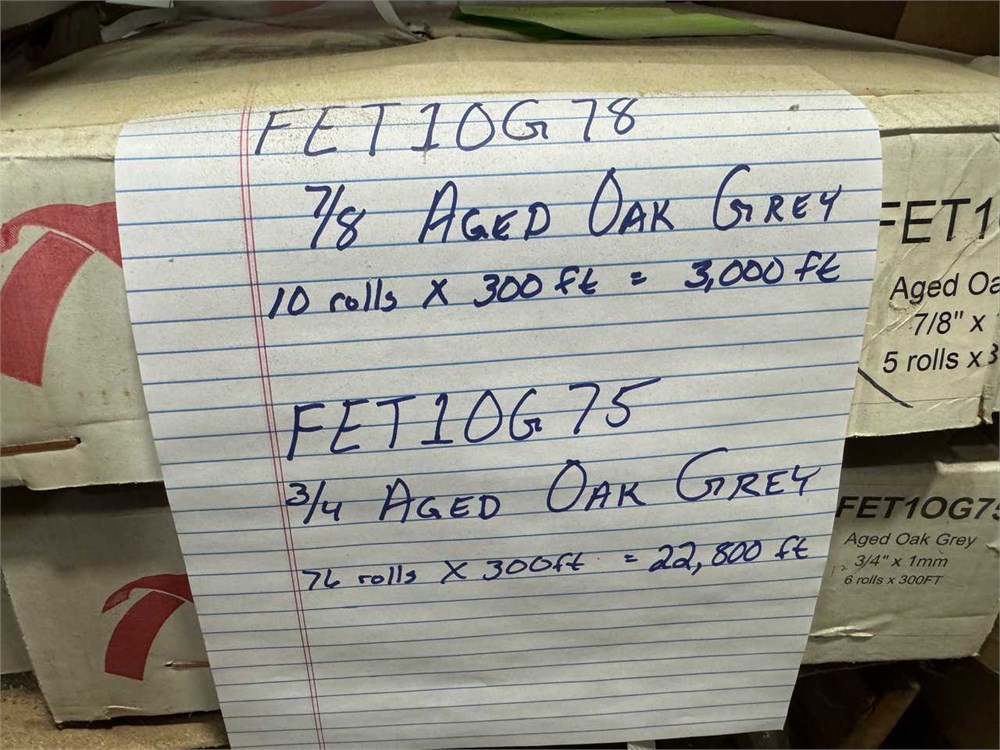 FET1OG78
7/8 AGED OAK GREY
10 rolls X 300 ft = 3,000 ft
FET1OG75
3/4 AGED OAK GREY
76 rolls X 300ft = 22,800 ft
FET1
Aged Oa
7/8" x
5 rolls x 3
FET1OG75
Aged Oak Grey
3/4" x 1mm
6 rolls x 300FT